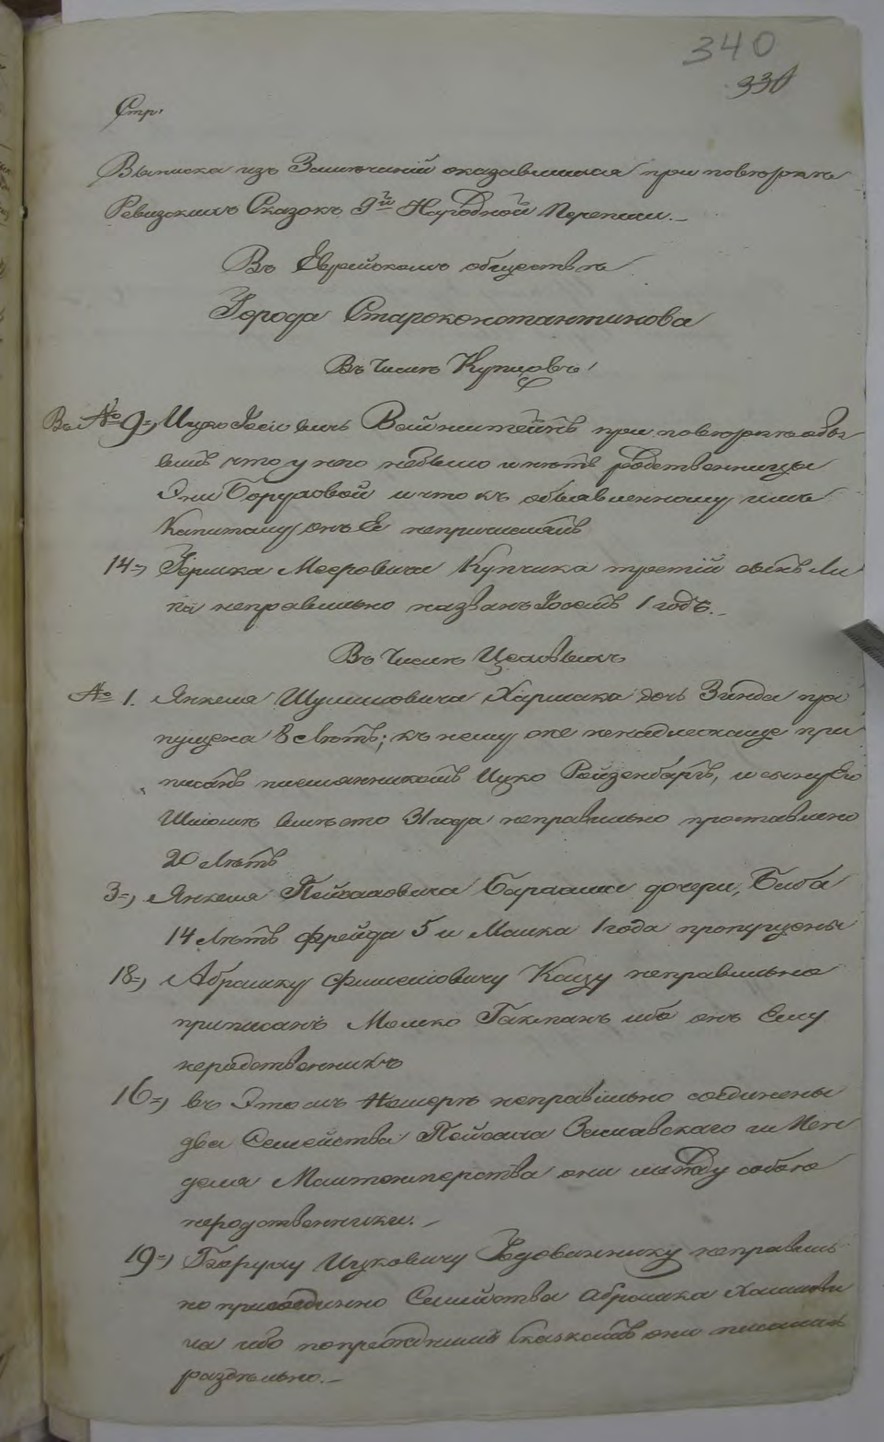 340
330
Стр.
Выписка изъ Замечаній оказавшихся при поверкѣ
Ревизскихъ Сказокъ 9й Народной Переписи.
Въ Еврейскомъ обществѣ
Города Староконстантинова
Въ Числѣ Купцовъ
Въ № 9, Ицко Іосіовичь Вайнштейнъ при поверкѣ объя
вилъ что у него небыло и нѣтъ родственницы
Эни Боруховой и что къ объявленному имъ
Капиталу онъ Ее непричислялъ
14, Гершка Мееровича Купчика третій сынъ Ли
па неправильно названъ Іосемъ 1 годъ.
Въ Числѣ Цеховыхъ
№ 1. Янкеля Шулимовича Хармака дочь Зинда про
пущена 8 лѣтъ; къ нему же ненадлежаще при
писанъ племянникомъ Ицко Ройзенбаргъ, и сыну Его
Шліомѣ вмѣсто 31 года неправильно проставлено
20 лѣтъ
3, Янкеля Пейсаховича Бараша дочери, Биба
14 лѣтъ Фрейда 5 и Малка 1 года пропущены
18, Абрамку Фишелiовичу Кацу неправильно
приписанъ Мошко Гакманъ ибо онъ Ему
неродственникъ
16, въ Этомъ Номерѣ неправильно соединены
два Семейства Пейсаха Заславскаго и Мен
деля они между собою
неродственники.
19, Боруху Ицковичу неправиль
но присоединно Семейства Абрамка
ча ибо попреждним Сказкамъ они писались
раздѣльно.